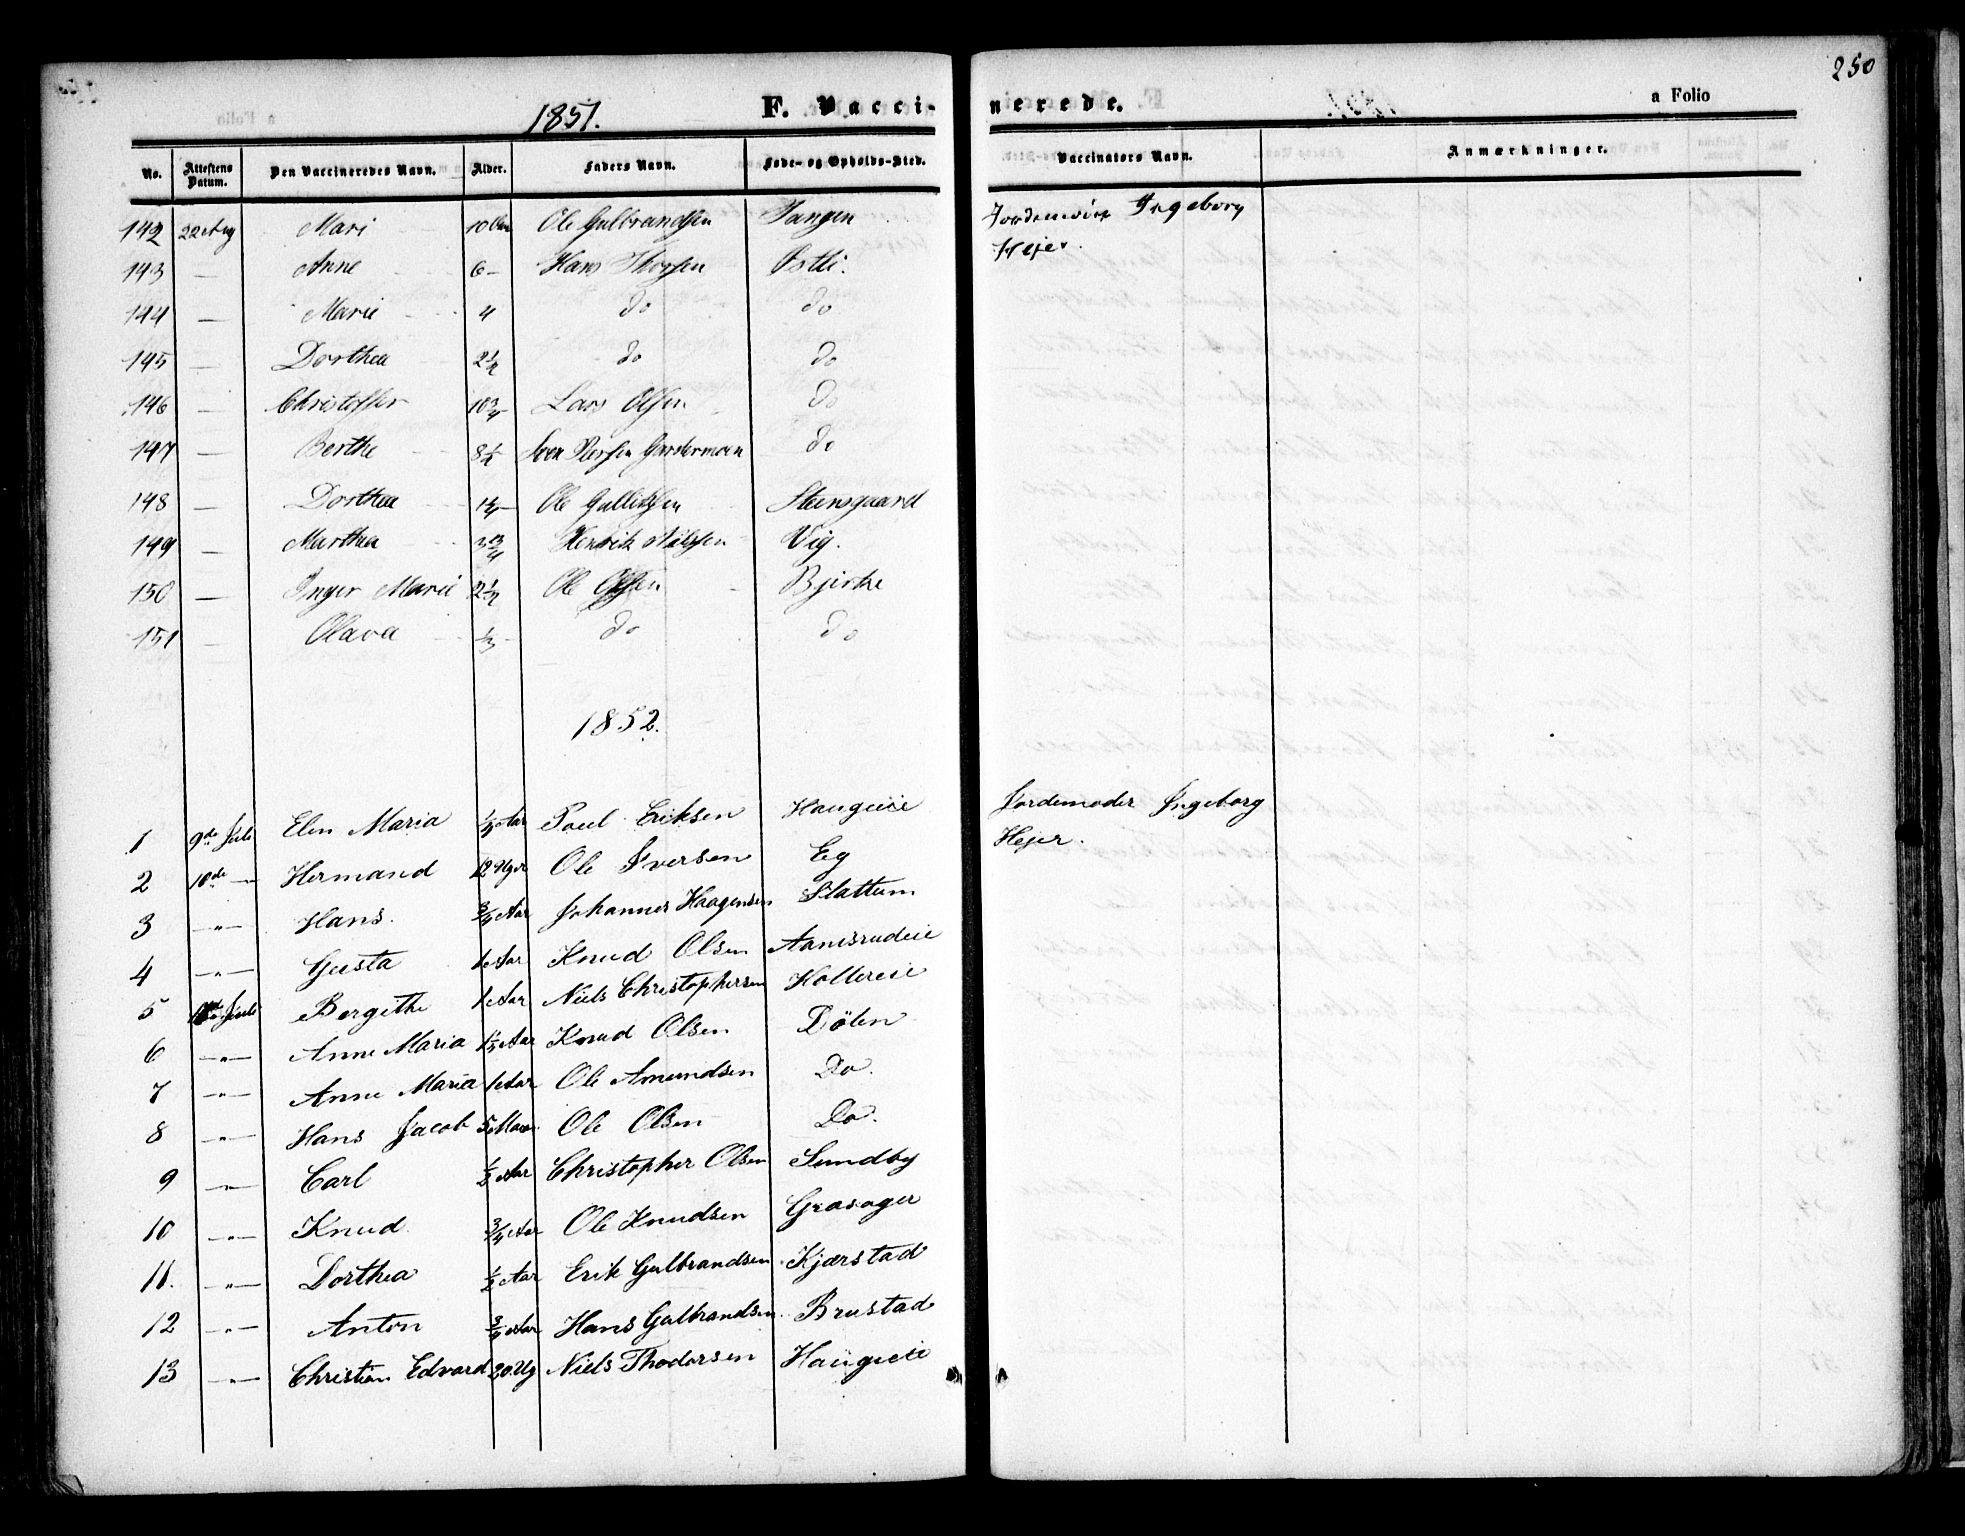 250
1851. F. Vaccinerede. a Folio
No. Attestens Datum. Den Vaccineredes Navn. Alder. Faders Navn. Føde- og Opholds-Sted. Vaccinators Navn. Anmærkninger.
142 22 Aug Mari 10 Ole Gulbrandsen Tangen Ingeborg
Hejer.
143 — Anne 6 — Hans Østli.
144 — Marie 4 do do
145 — Dorthea 2½ do do
146 — Christoffer 10¾ Lars Olsen do
147 — Berthe Gardermoen do
148 — Dorthea Ole Steensgaard
149 — Marthea Henrik Nilssen Vig.
150 — Inger Marie 2½ Ole Olsen Bjerke
151 — Olava do do
1852.
1 9de Juli Elen Maria Aar Poul Eriksen Haugeeie Jordemoder Ingeborg
Hejer.
2 10de — Hermand 12 Uger Ole Iversen Eg
3 —"— Hans. ¾ Aar Johannes Haagensen Slattum
4 —"— Gusta 1 Aar Knud Olsen Aamsrudeie
5 Juli Bergithe 1 Aar Niels Christophersen Hollereie
6 —"— Anne Maria 1½ Aar Knud Olsen Dølen
7 —"— Anne Maria 1 Aar Ole Amundsen Do.
8 —"— Hans Jacob 5 Ole Olsen Do.
9 —"— Carl ½ Aar Christopher Olsen Sundby
10 —"— Knud ¾ Aar Ole Knudsen Grasager
11. —"— Dorthea ½ Aar Erik Gulbrandsen Kjærstad
12 —"— Anton ¾ Aar Hans Gulbrandsen Brustad
13 —"— Christian Edvard 20 Ug Niels Thodersen Haugeeie